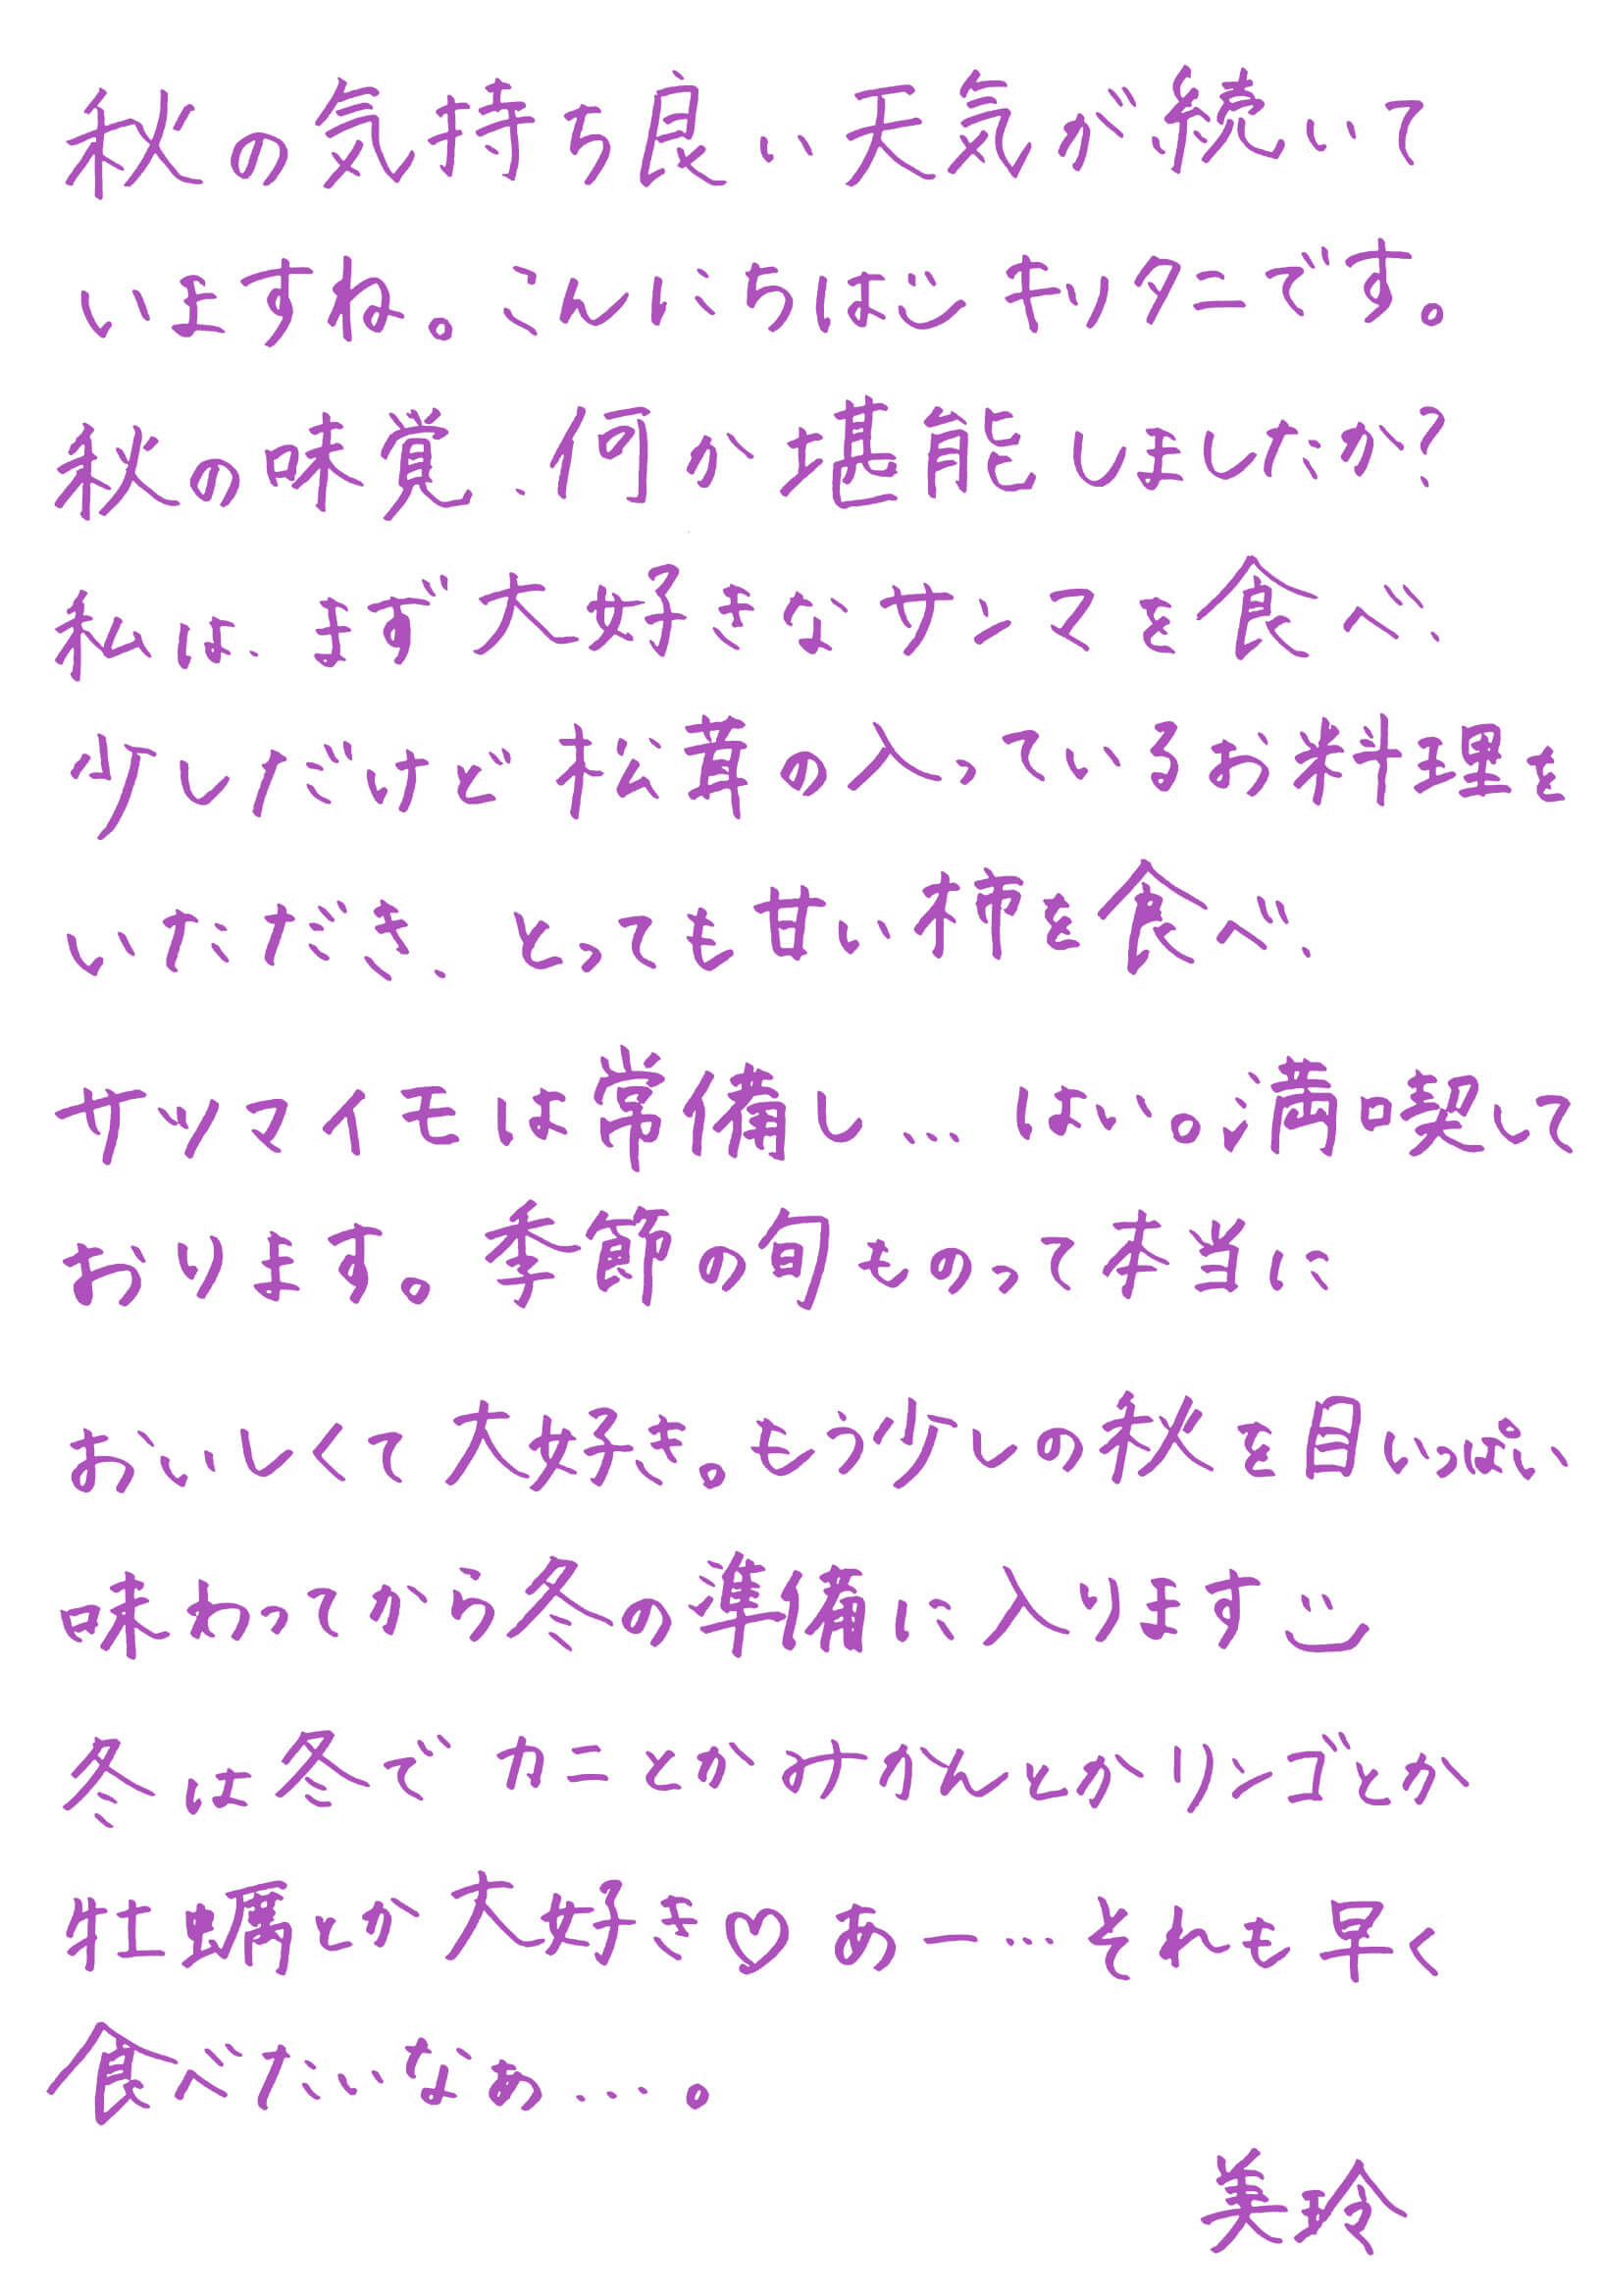 秋の気持ち良い天気が続いて
いますね。こんにちはじ キリタニです。
秋の味覚、何か堪能しましたか？
私は、まず大好きなサンマを食べ、
少しだけど松茸の入っているお料理を
いただき、とっても甘い柿を食べ、
サツマイモは常備し… はい。満喫して
おります。季節の旬ものって本当に
おいしくて大好き。もう少しの秋を目いっぱい
味わってから冬の準備に入ります
冬は冬で カニとかみかんとかリンゴとか
牡蠣とか大好き♡ あー… それも早く
食べたいなぁ…。
美玲